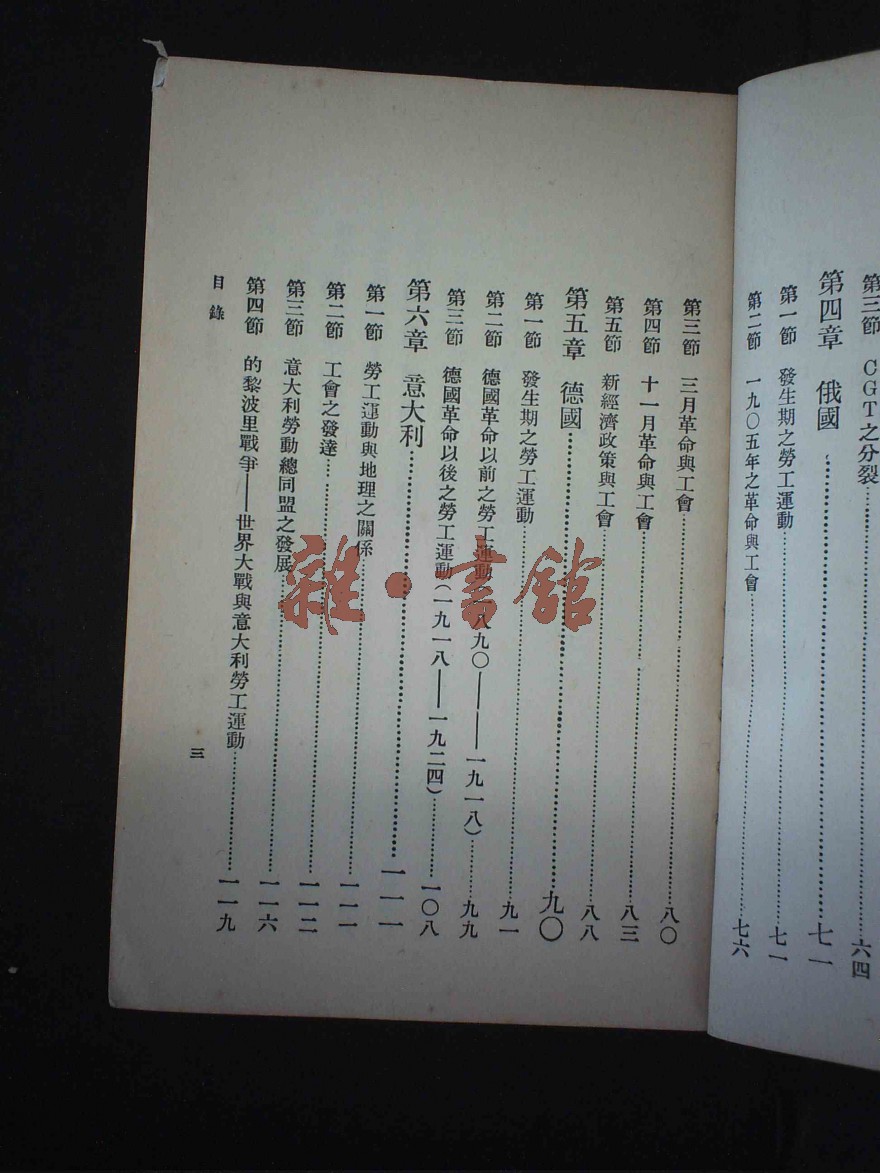 第三節 CGT之分裂……六四
第四章 俄國……七一
第一節 發生期之勞工運動……七一
第二節 一九〇五年之革命與工會……七六
第三節 三月革命與工會……八〇
第四節 十一月革命與工會……八三
第五節 新經濟政策與工會……八八
第五章 德國……九〇
第一節 發生期之勞工運動……九一
第二節 德國革命以前之勞工運動(一八九〇——一九一八)……九九
第三節 德國革命以後之勞工運動(一九一八——一九二四)……一〇八
第六章 意大利……一一一
第一節 勞工運動與地理之關係……一一一
第二節 工會之發達……一一二
第三節 意大利勞動總同盟之發展……一一六
第四節 的黎波里戰爭——世界大戰與意大利勞工運動……一一九
目錄
三
雜·書館